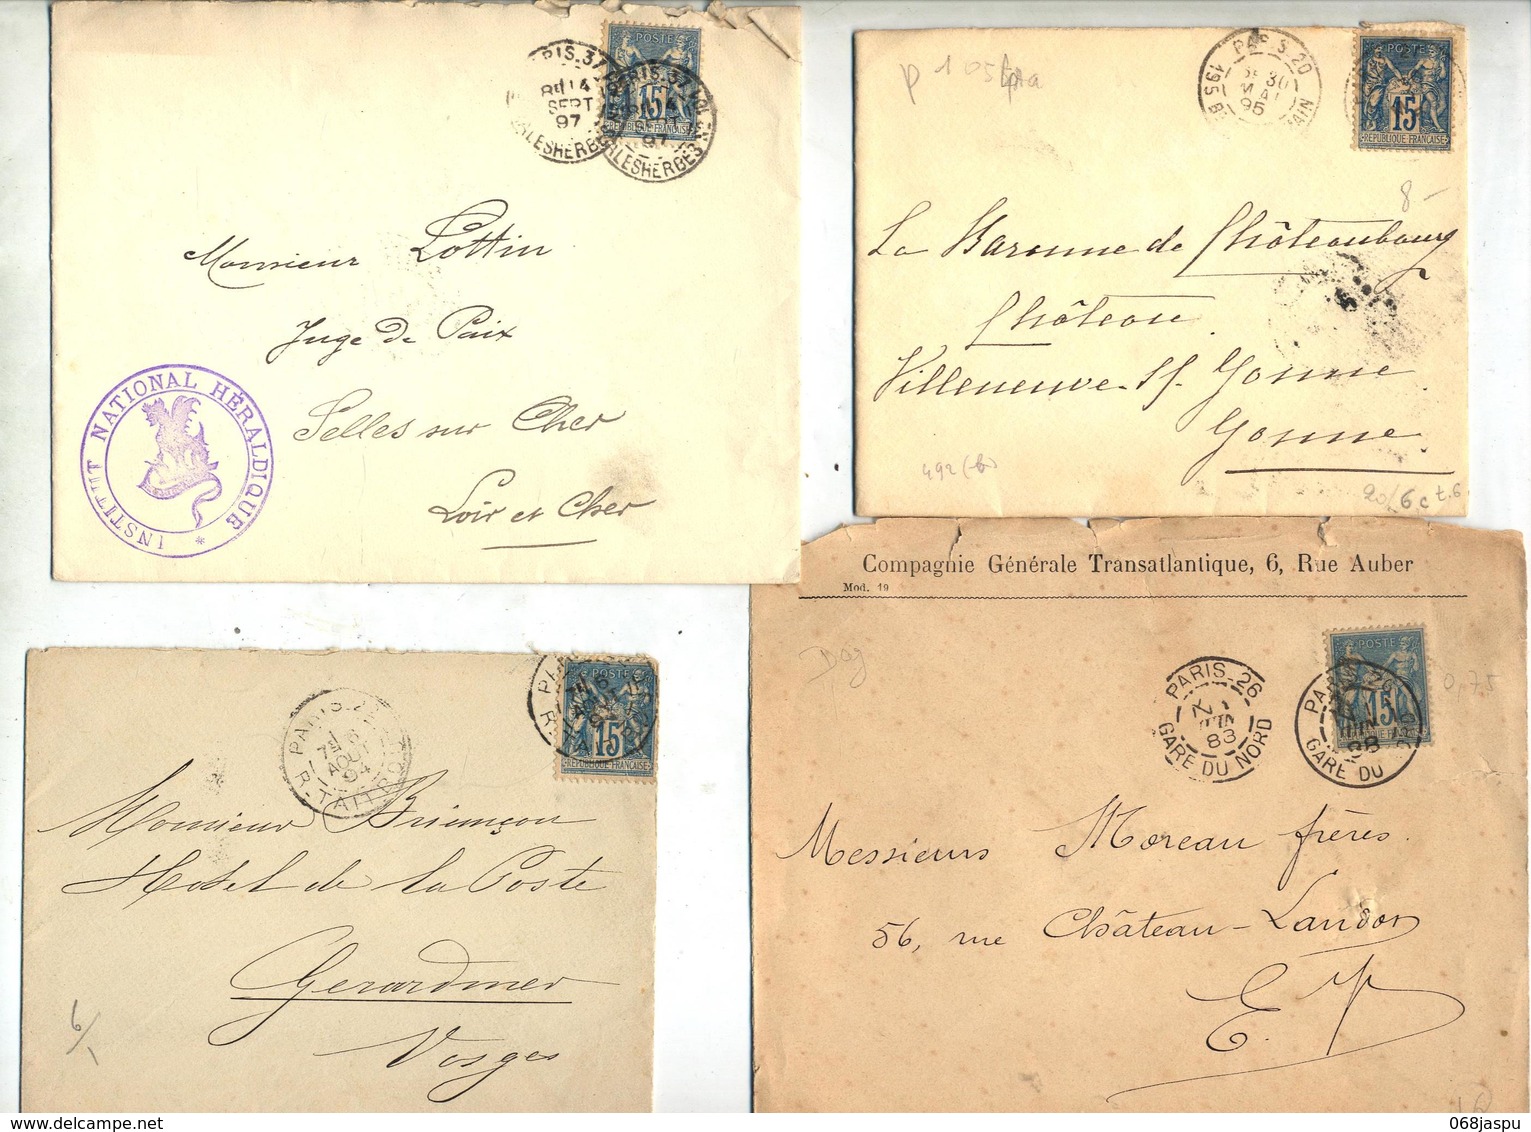 PARIS_37
8E 14
SEPT
97
MALESHERBES
POSTE
15
REPUBLIQUE FRANÇAISE
Monsieur Lottin
Juge de Paix
Selles sur Cher
Loir et Cher
INSTITUT NATIONAL HÉRALDIQUE
PARIS_20
30
MAI
95
POSTE
15
REPUBLIQUE FRANÇAISE
8-
La Baronne de Châteaubourg
Château
Villeneuve s/ Yonne
Yonne
492 (b)
20/6 c t.6
PARIS
7E 6
AOUT
94
R. TAITBOUT
POSTE
15
REPUBLIQUE FRANÇAISE
Monsieur Briançon
Hotel de la Poste
Gerardmer
Vosges
6/1
Compagnie Générale Transatlantique, 6, Rue Auber
Mod. 19
PARIS_26
JUIN
83
GARE DU NORD
POSTE
15
PARIS 26
GARE DU NORD
0,75
Messieurs Moreau frères.
56, rue Château-Landon
E. V.
068jaspu